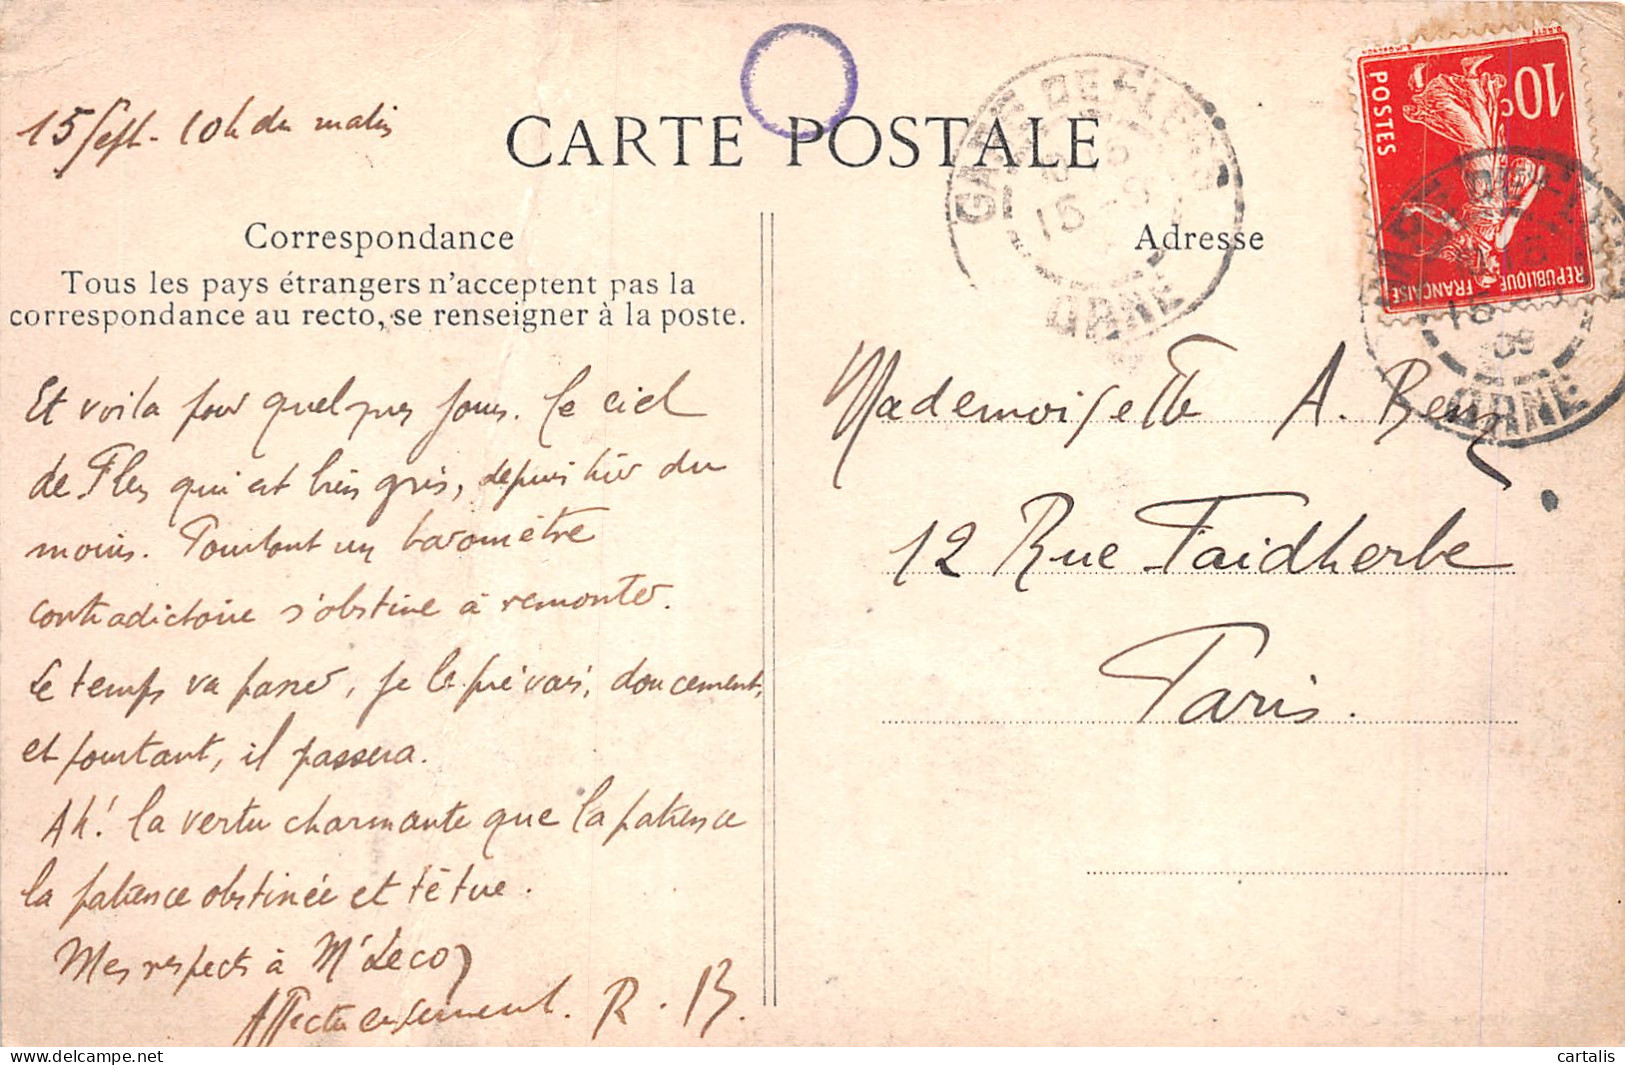 15 Sept. 10h du matin
CARTE POSTALE
GARE DE FLERS
15 - 9
ORNE
10c
POSTES
REPUBLIQUE FRANÇAISE
GARE DE FLERS
15
09
ORNE
Correspondance
Tous les pays étrangers n'acceptent pas la
correspondance au recto, se renseigner à la poste.
Et voila pour quelques jours. Le ciel
de Flers qui est bien gris, depuis hier du
moins. Pourtant un baromètre
contradictoire s'obstine à remonter.
Le temps va passer, je le prévois, doucement,
et pourtant, il passera.
Ah! la vertu charmante que la patience
la patience obstinée et têtue.
Mes respects à Mr Lecoq
Affectueusement. R. B.
Adresse
Mademoiselle A.
12 Rue Faidherbe
Paris.
cartalis